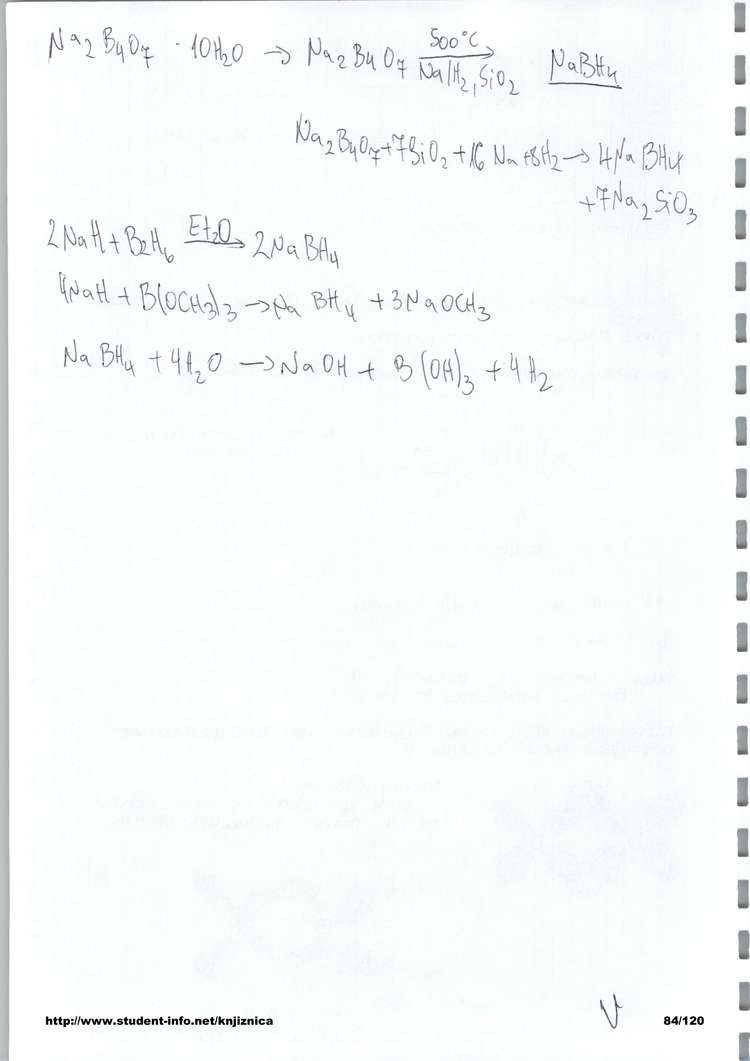 Na2B4O7 · 10H2O → Na2B4O7 500°C → Na/H2, SiO2 NaBH4
Na2B4O7 + 7SiO2 + 16 Na + 8H2 → 4NaBH4
+ 7Na2SiO3
2NaH + B2H6 Et2O → 2NaBH4
4NaH + B(OCH3)3 → NaBH4 + 3NaOCH3
NaBH4 + 4H2O → NaOH + B(OH)3 + 4H2
http://www.student-info.net/knjiznica 84/120